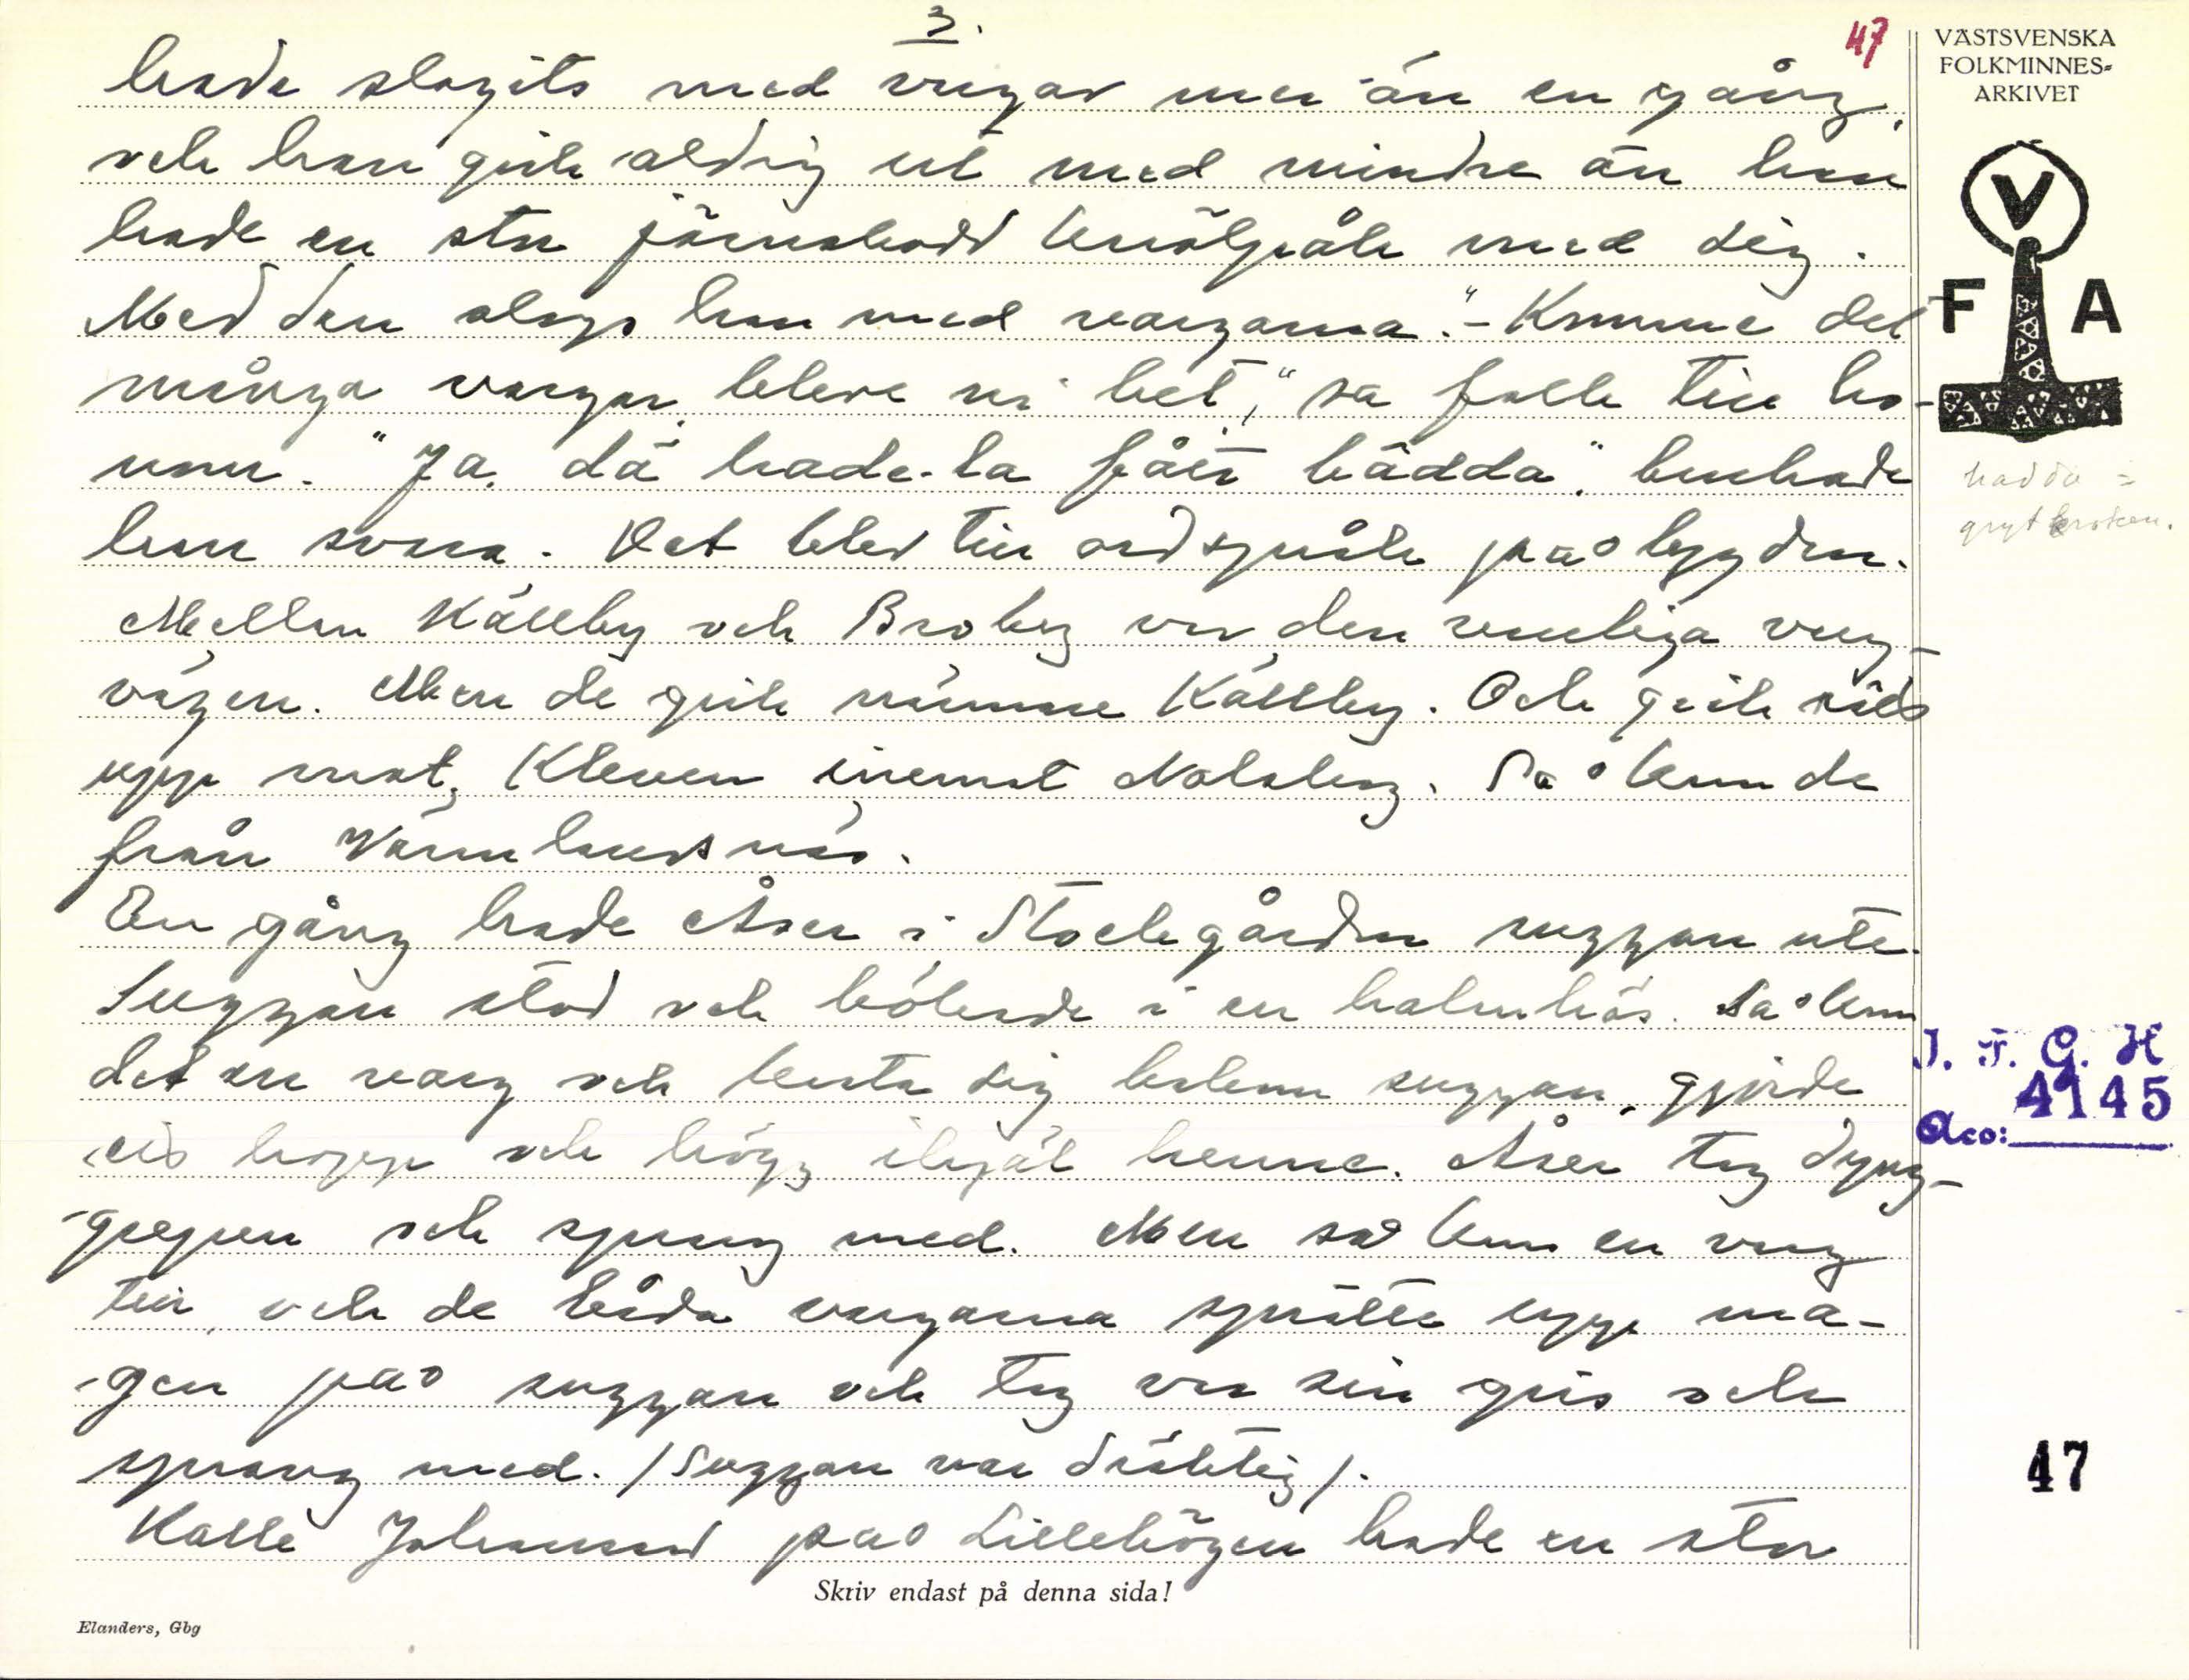 3.
47
hade slagits med vargar mer än en gång,
och han gick aldrig ut med mindre än han
hade en stor järnskodd knölpåk med sig.
Med den slogs han med vargarna. "- Komme det
många vargar, bleve ni het," sa folk till ho-
nom. "Ja, då hade-la fått hädda", brukade
han svara. Det blev till ordspråk på bygden.
Mellan Källby och Broby var den vanliga varg-
vägen. Men de gick närmre Källby. Och gick
upp mot Kleven inemot Nolsberg. Så kom de
från Värmlandsnäs.
En gång hade Åser i Stockegården suggan ute.
Suggan stod och bökade i en halmhäs. Så kom
det en varg och kasta sig bakom suggan, gjorde
ett hopp och högg ihjäl henne. Åser tog dyng-
grepen och sprang med. Men så kom en varg
till, och de båda vargarna sprätte upp ma-
gen på suggan och tog var sin gris och
sprang med. /Suggan var dräktig/.
Kalle Johannes på Lillehögen hade en stor
Skriv endast på denna sida!
Elanders, Gbg
VÄSTSVENSKA
FOLKMINNES-
ARKIVET
V
F A
hadda =
grytkroken.
I. F. G. H
4145
Acc:
47